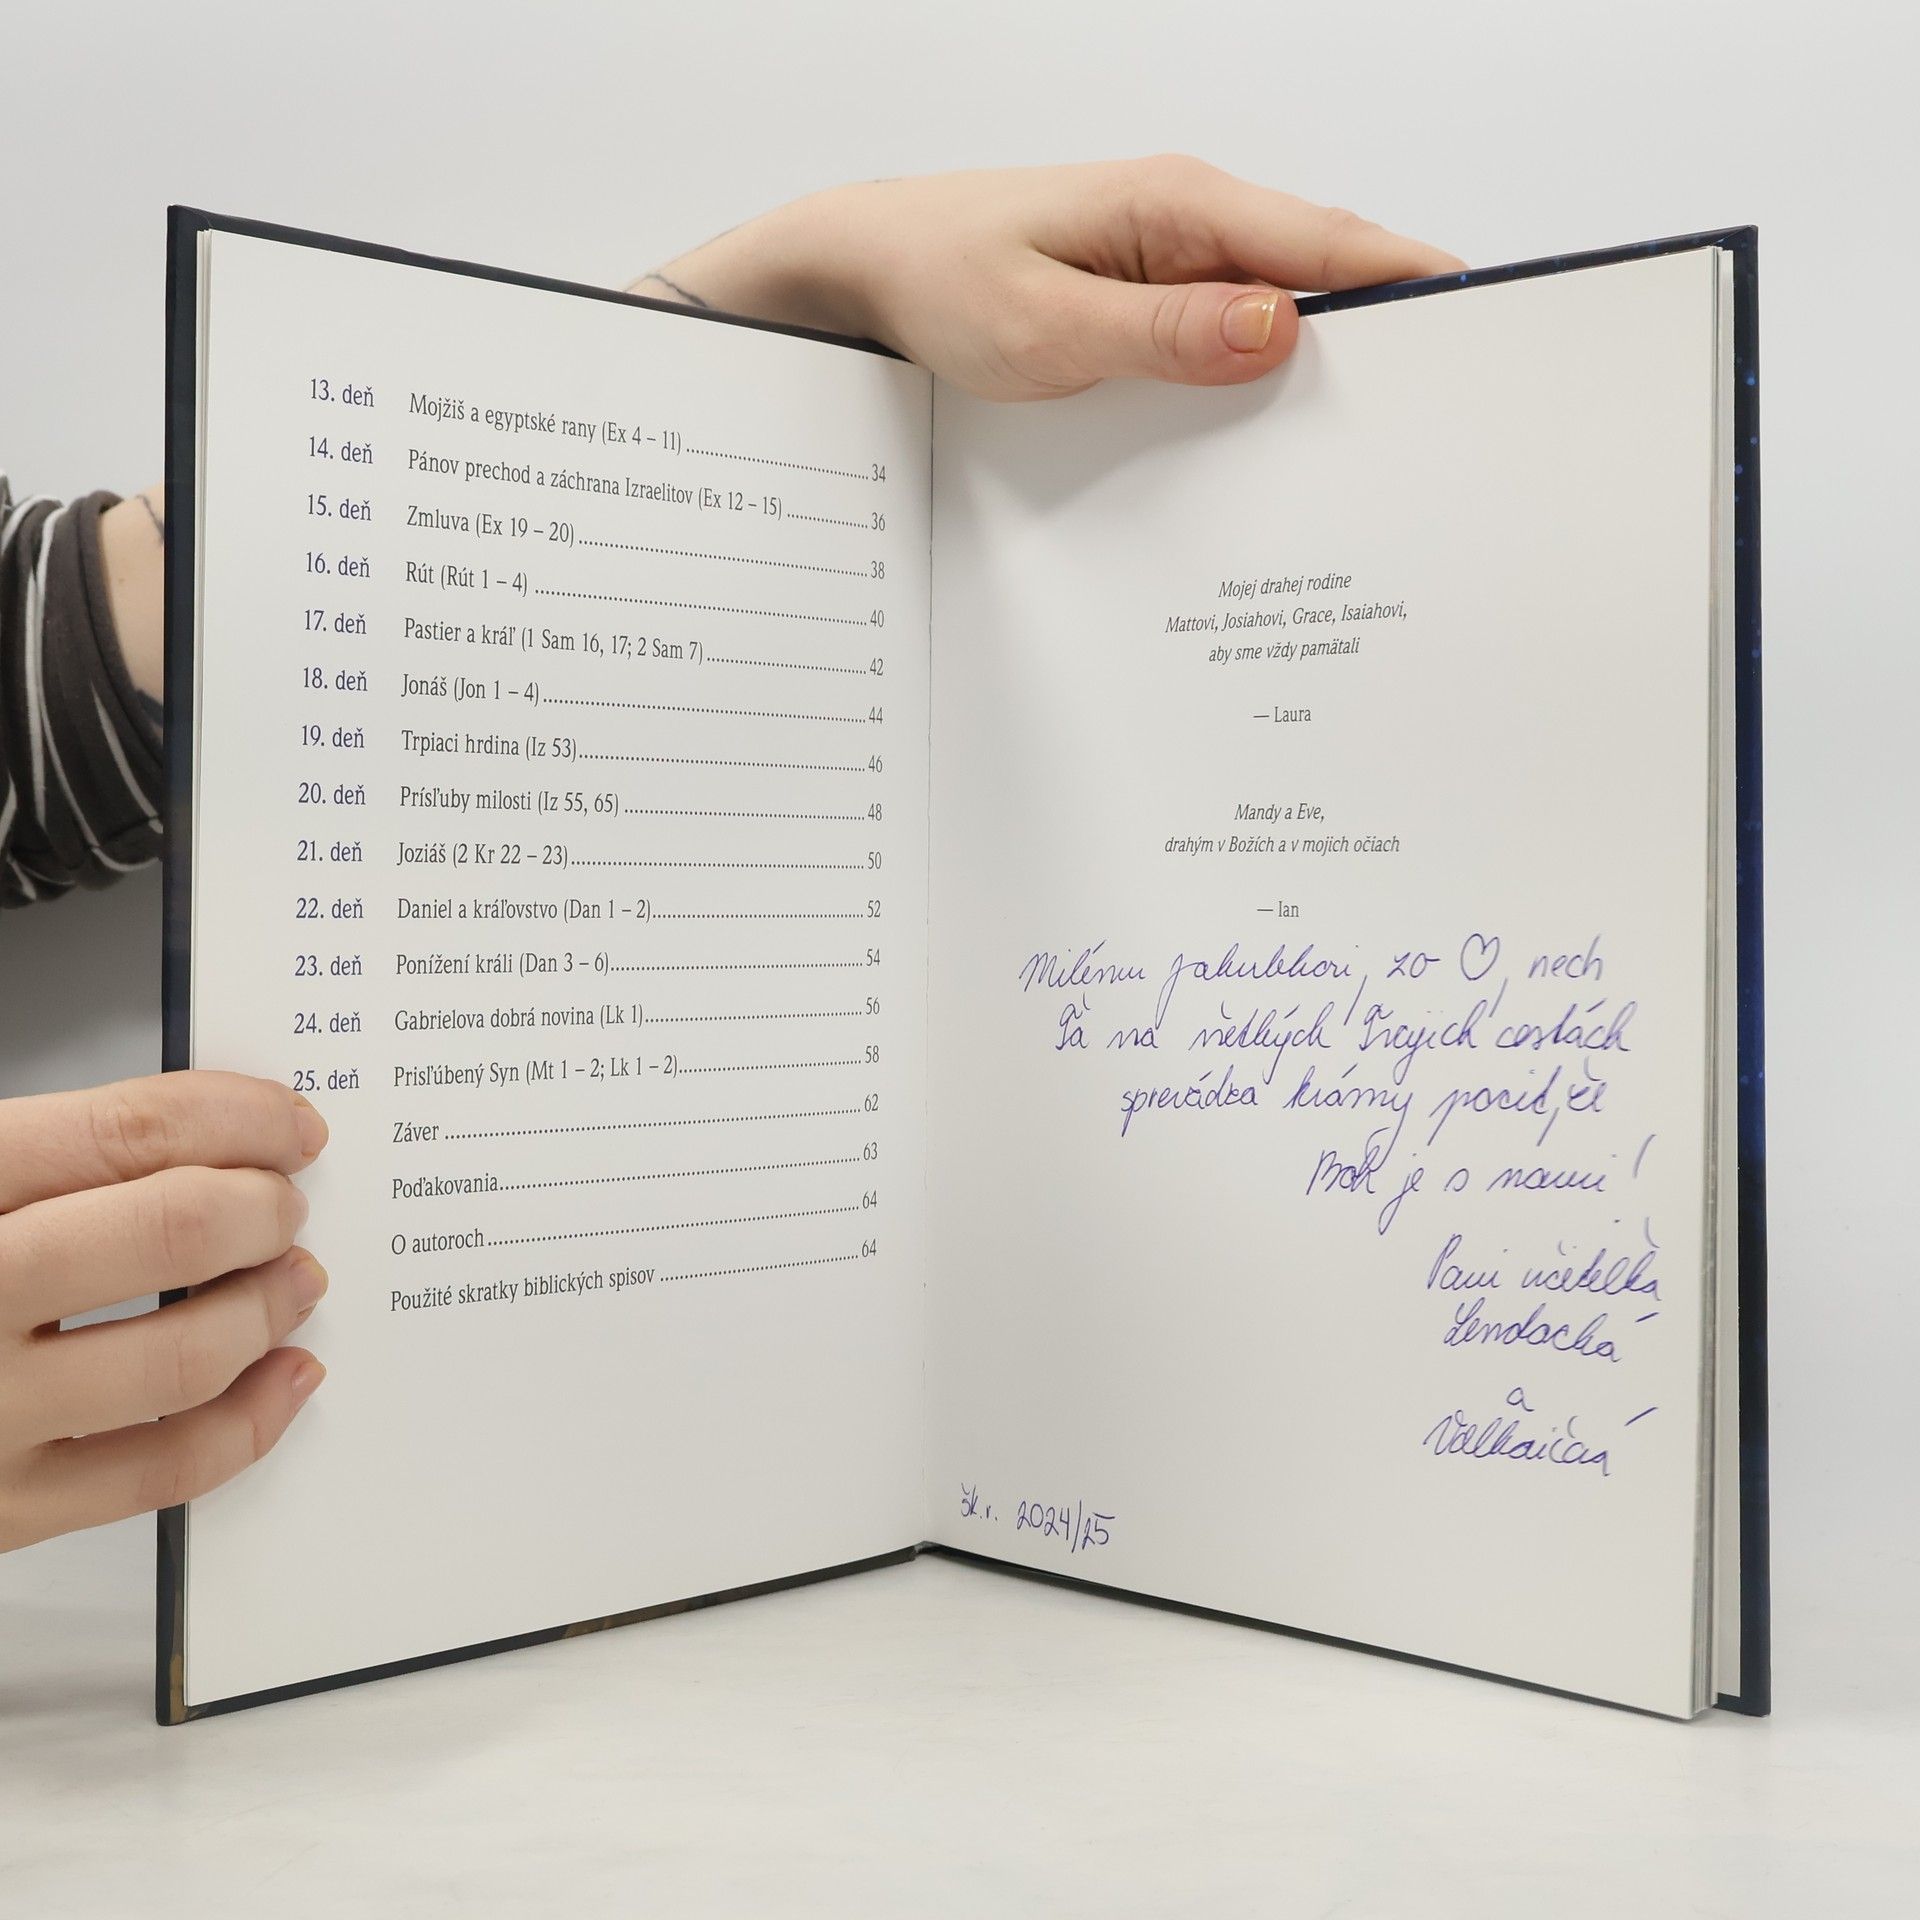 13. deň Mojžiš a egyptské rany (Ex 4 – 11) 34
14. deň Pánov prechod a záchrana Izraelitov (Ex 12 – 15) 36
15. deň Zmluva (Ex 19 – 20) 38
16. deň Rút (Rút 1 – 4) 40
17. deň Pastier a kráľ (1 Sam 16, 17; 2 Sam 7) 42
18. deň Jonáš (Jon 1 – 4) 44
19. deň Trpiaci hrdina (Iz 53) 46
20. deň Prísľuby milosti (Iz 55, 65) 48
21. deň Joziáš (2 Kr 22 – 23) 50
22. deň Daniel a kráľovstvo (Dan 1 – 2) 52
23. deň Ponížení králi (Dan 3 – 6) 54
24. deň Gabrielova dobrá novina (Lk 1) 56
25. deň Prisľúbený Syn (Mt 1 – 2; Lk 1 – 2) 58
Záver 62
Poďakovania 63
O autoroch 64
Použité skratky biblických spisov 64
Mojej drahej rodine
Mattovi, Josiahovi, Grace, Isaiahovi,
aby sme vždy pamätali
— Laura
Mandy a Eve,
drahým v Božích a v mojich očiach
— Ian
Milému Jakubkovi, zo ♡, nech
Ťa na všetkých Tvojich cestách
sprevádza krásny pocit, že
Boh je s nami!
Pani učiteľka
Lendacká
a
škr. 2024/25